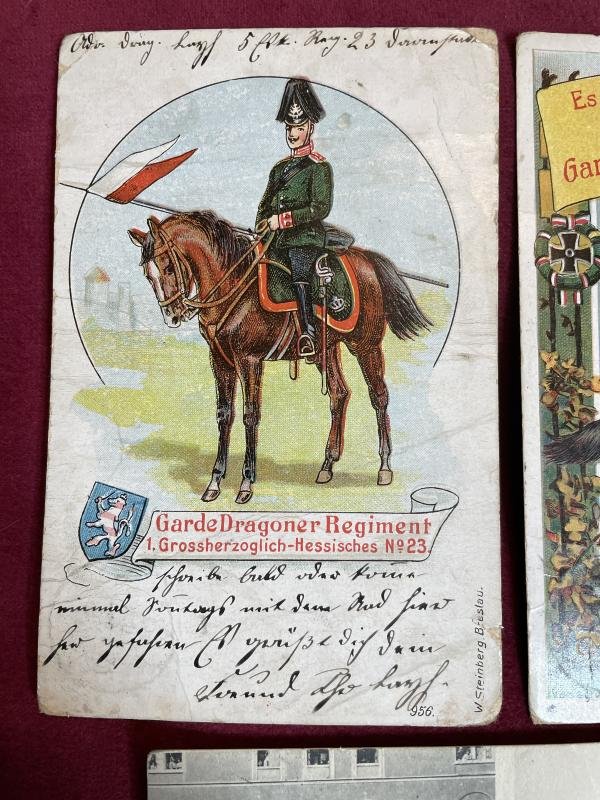 Adr. Drag. Layh 5 Esk. Reg. 23 Darmstadt
Garde Dragoner Regiment
1. Grossherzoglich-Hessisches Nº 23.
schreibe bald oder komme
einmal Sontags mit dem Rad hier
her gefahren Es grüßt dich dein
Freund Layh.
956.
W. Steinberg Breslau.
Es
Gar